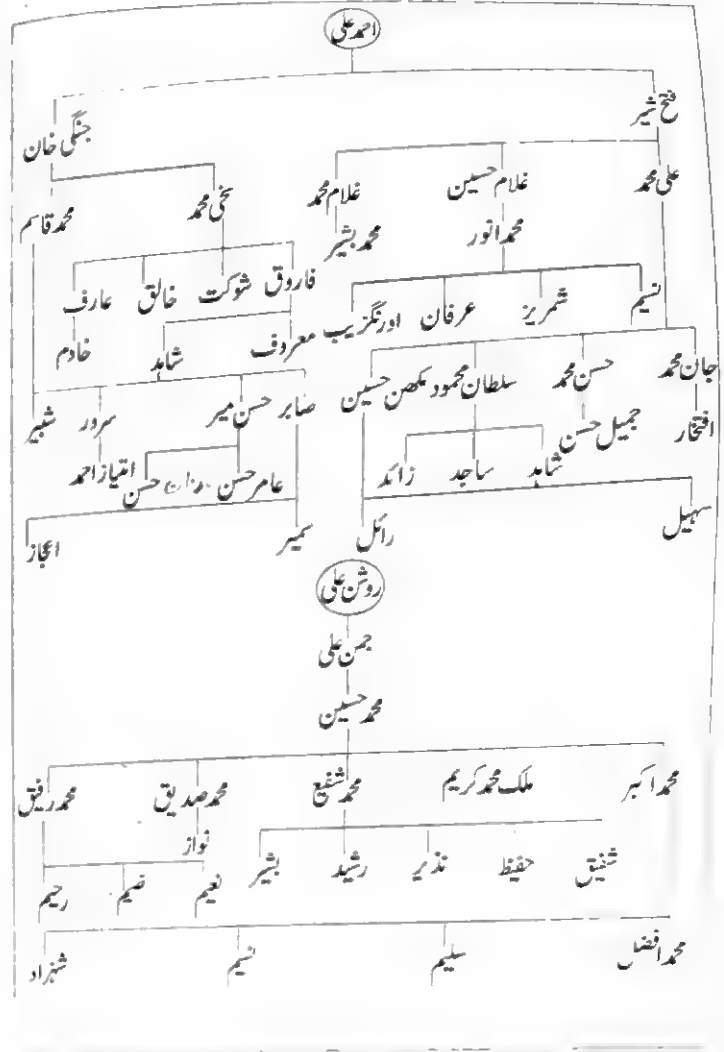 احمد علی
فتح شیر
جنگی خان
علی محمد
غلام حسین
غلام محمد
سخی محمد
محمد قاسم
محمد انور
محمد بشیر
نسیم
شمریز
عرفان
اورنگزیب
فاروق
شوکت
خالق
عارف
معروف
شاہد
خادم
جان محمد
حسن محمد
سلطان محمود
مکھن حسین
صابر
حسن میر
سرور
شبیر
افتخار
جمیل حسن
شاہد
ساجد
زائد
عامر حسن
حسن
امتیاز احمد
سہیل
رائل
سمیر
اعجاز
روشن علی
جمن علی
محمد حسین
محمد اکبر
ملک محمد کریم
محمد شفیع
محمد صدیق
محمد رفیق
نواز
شفیق
حفیظ
نذیر
رشید
بشیر
نعیم
ضیم
رحیم
محمد افضل
سلیم
نسیم
شہزاد